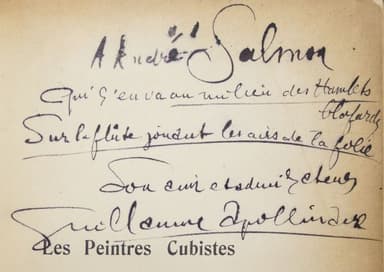 A André Salmon
Qui s'en va au milieu des Hamlets
blafards
Sur la flûte jouant les airs de la folie
Son ami et admirateur
Guillaume Apollinaire
Les Peintres Cubistes